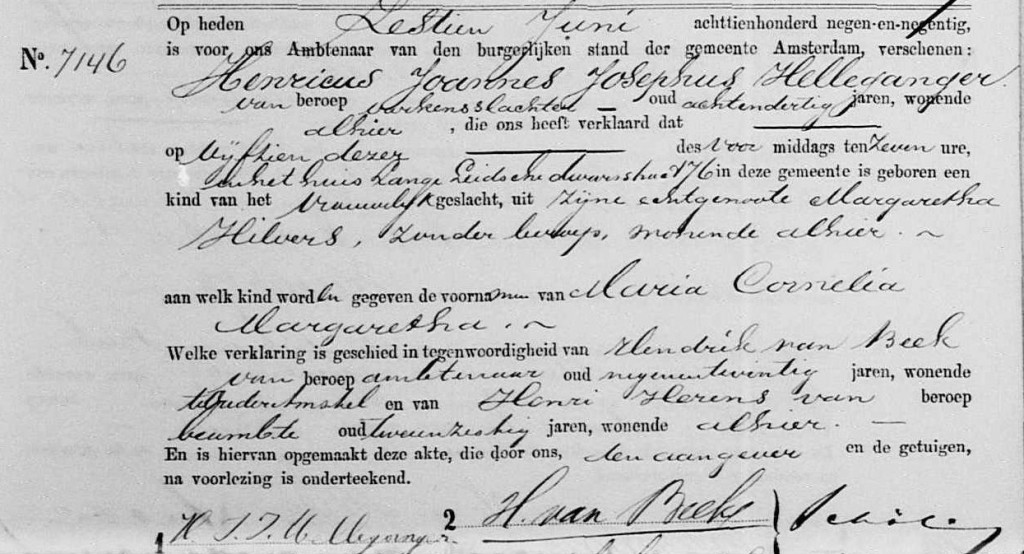 Op heden Zestien Juni achttienhonderd negen-en-negentig,
is voor ons Ambtenaar van den burgerlijken stand der gemeente Amsterdam, verschenen:
No. 7146
Henricus Joannes Josephus Helleganger
van beroep varkensslachter — oud achtendertig jaren, wonende
alhier , die ons heeft verklaard dat
op Vijftien dezer des Voor middags ten Zeven ure,
in het huis Lange Leidsche dwarsstraat 176 in deze gemeente is geboren een
kind van het Vrouwelijk geslacht, uit zijne echtgenoote Margaretha
Hilvers, zonder beroep, wonende alhier. ~
aan welk kind worden gegeven de voornamen van Maria Cornelia
Margaretha. ~
Welke verklaring is geschied in tegenwoordigheid van Hendrik van Beek
van beroep ambtenaar oud negenentwintig jaren, wonende
te Ouderamstel en van Henri Herens van beroep
beambte oud tweeenzestig jaren, wonende alhier. —
En is hiervan opgemaakt deze akte, die door ons, den aangever en de getuigen,
na voorlezing is onderteekend.
1 H. J. J. 2 H. van Beek